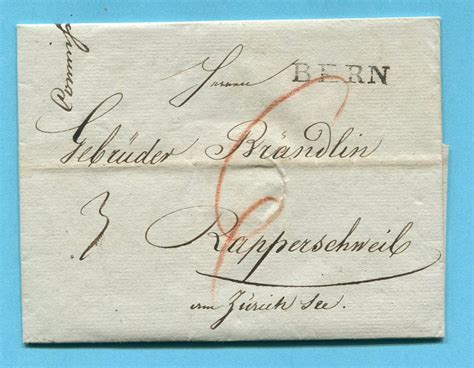 BERN
Herrn
Gebrüder Brändlin
3
Rapperschweil
am Zürich See.
6